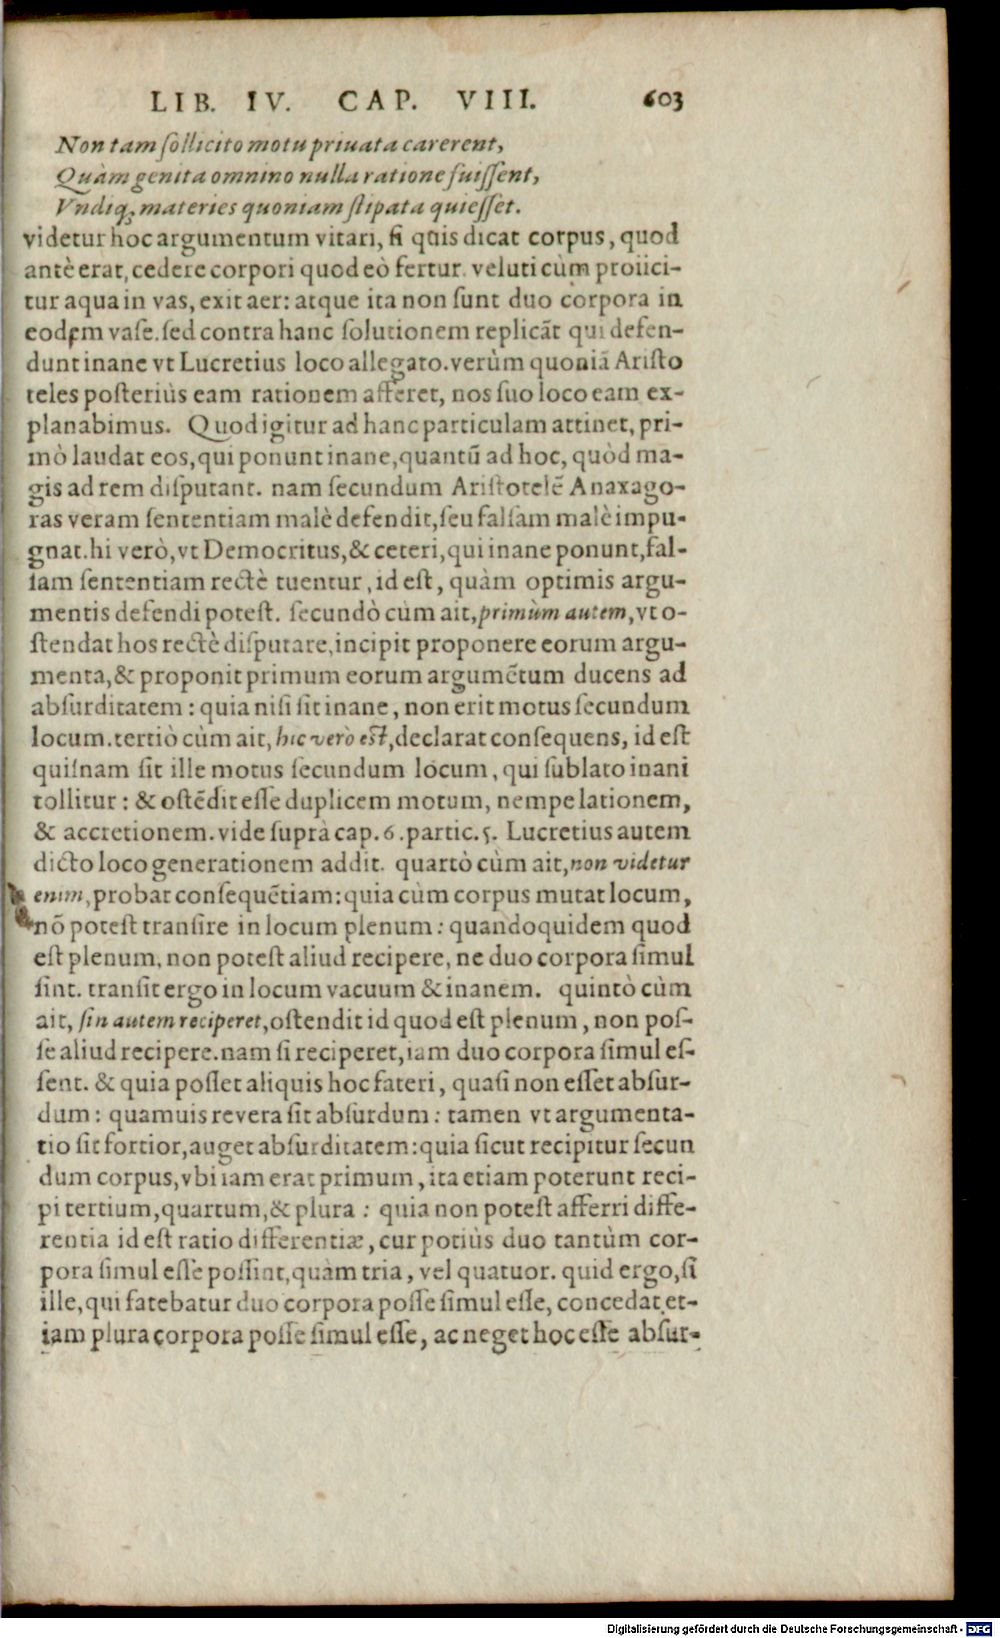 LIB. IV. CAP. VIII. 603
Non tam ſollicito motu priuata carerent,
Quàm genita omnino nulla ratione fuiſſent,
Vndiq; materies quoniam ſtipata quieſſet.
videtur hoc argumentum vitari, ſi quis dicat corpus, quod
antè erat, cedere corpori quod eò fertur. veluti cùm proiici-
tur aqua in vas, exit aer: atque ita non ſunt duo corpora in
eodem vaſe. ſed contra hanc ſolutionem replicāt qui defen-
dunt inane vt Lucretius loco allegato. verùm quoniā Ariſto
teles poſteriùs eam rationem afferet, nos ſuo loco eam ex-
planabimus. Quod igitur ad hanc particulam attinet, pri-
mò laudat eos, qui ponunt inane, quantū ad hoc, quòd ma-
gis ad rem diſputant. nam ſecundum Ariſtotelē Anaxago-
ras veram ſententiam malè defendit, ſeu falſam malè impu-
gnat. hi verò, vt Democritus, & ceteri, qui inane ponunt, fal-
ſam ſententiam rectè tuentur, id eſt, quàm optimis argu-
mentis defendi poteſt. ſecundò cùm ait, primùm autem, vt o-
ſtendat hos rectè diſputare, incipit proponere eorum argu-
menta, & proponit primum eorum argumētum ducens ad
abſurditatem: quia niſi ſit inane, non erit motus ſecundum
locum. tertiò cùm ait, hic verò eſt, declarat conſequens, id eſt
quiſnam ſit ille motus ſecundum locum, qui ſublato inani
tollitur: & oſtēdit eſſe duplicem motum, nempe lationem,
& accretionem. vide ſuprà cap. 6. partic. 5. Lucretius autem
dicto loco generationem addit. quartò cùm ait, non videtur
enim, probat conſequētiam: quia cùm corpus mutat locum,
nō poteſt tranſire in locum plenum: quandoquidem quod
eſt plenum, non poteſt aliud recipere, ne duo corpora ſimul
ſint. tranſit ergo in locum vacuum & inanem. quintò cùm
ait, ſin autem reciperet, oſtendit id quod eſt plenum, non poſ-
ſe aliud recipere. nam ſi reciperet, iam duo corpora ſimul eſ-
ſent. & quia poſſet aliquis hoc fateri, quaſi non eſſet abſur-
dum: quamuis revera ſit abſurdum: tamen vt argumenta-
tio ſit fortior, auget abſurditatem: quia ſicut recipitur ſecun
dum corpus, vbi iam erat primum, ita etiam poterunt reci-
pi tertium, quartum, & plura: quia non poteſt afferri diffe-
rentia id eſt ratio differentiæ, cur potiùs duo tantùm cor-
pora ſimul eſſe poſſint, quàm tria, vel quatuor. quid ergo, ſi
ille, qui fatebatur duo corpora poſſe ſimul eſſe, concedat et-
iam plura corpora poſſe ſimul eſſe, ac neget hoc eſſe abſur-
Digitalisierung gefördert durch die Deutsche Forschungsgemeinschaft - DFG